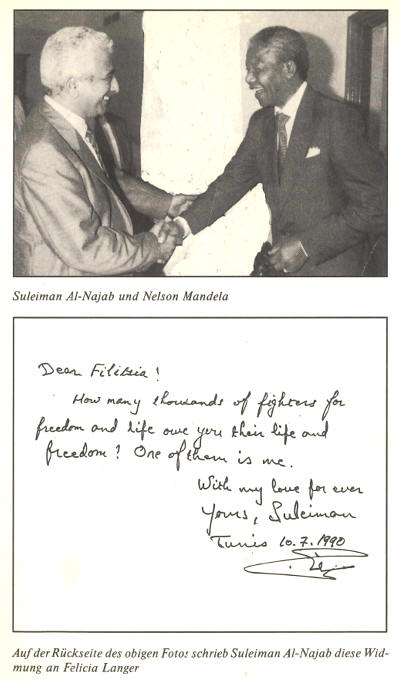 Suleiman Al-Najab und Nelson Mandela
Dear Filitzia!
How many thousands of fighters for
freedom and life owe you their life and
freedom? One of them is me.
With my love for ever
Yours, Suleiman
Tunis 10.7.1990
Auf der Rückseite des obigen Fotos schrieb Suleiman Al-Najab diese Wid-
mung an Felicia Langer